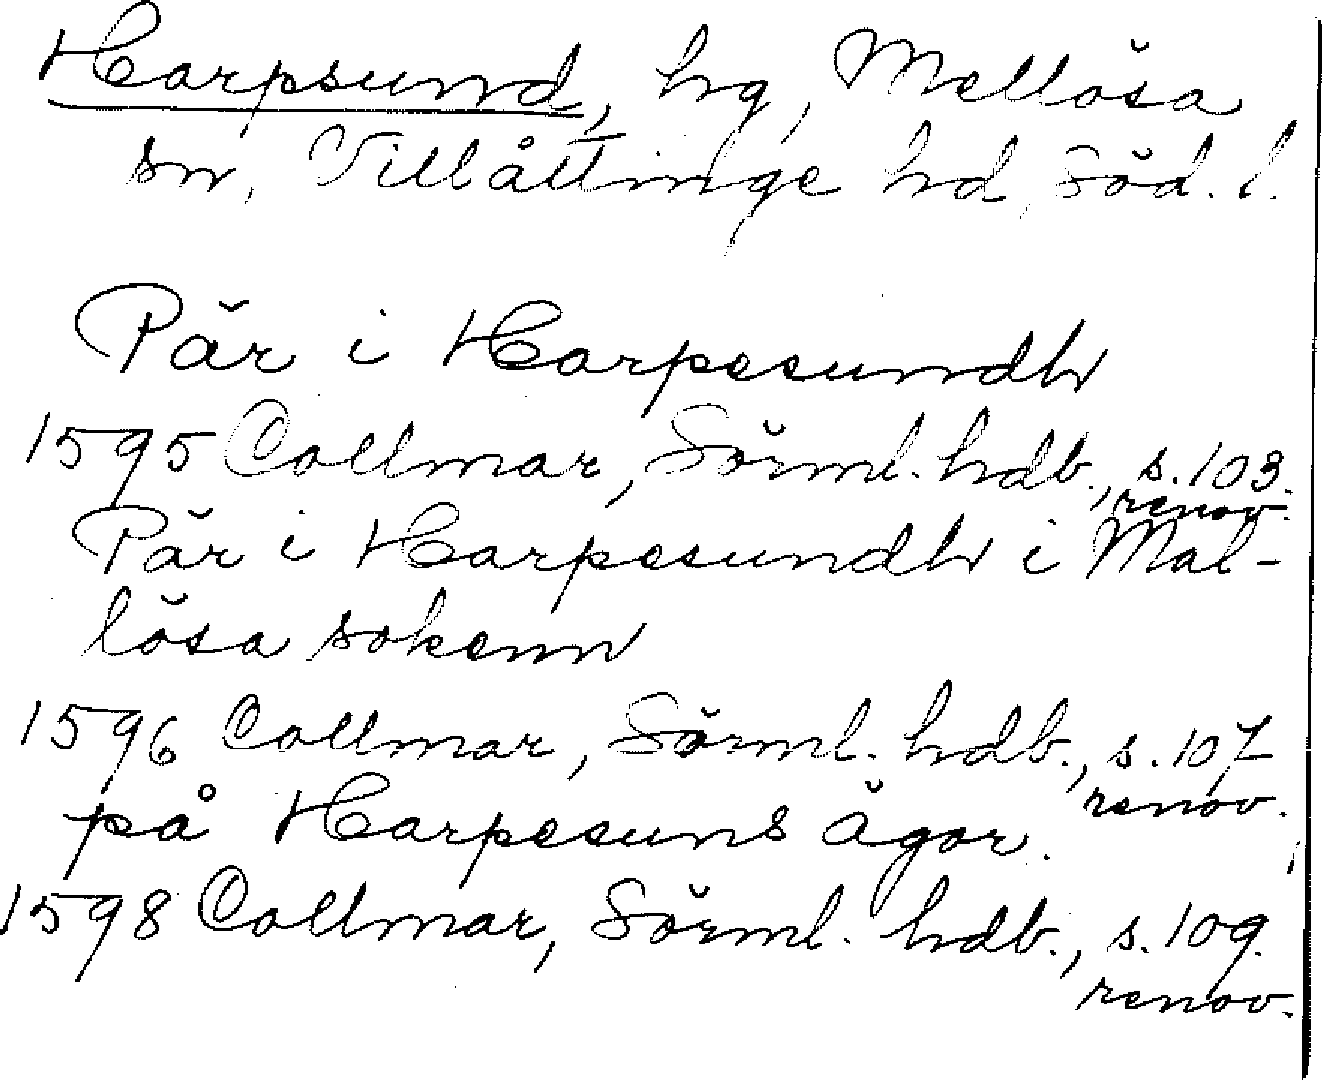 Harpsund, hg, Mellösa
sn, Villåttinge hd, Söd. l.
Pär i Harpesundh
1595 Collmar, Sörml. hdb., s. 103.
renov.
Pär i Harpesundh i Mal-
lösa sokenn
1596 Collmar, Sörml. hdb., s. 107
renov.
på Harpesuns ägor.
1598 Collmar, Sörml. hdb., s. 109.
renov.